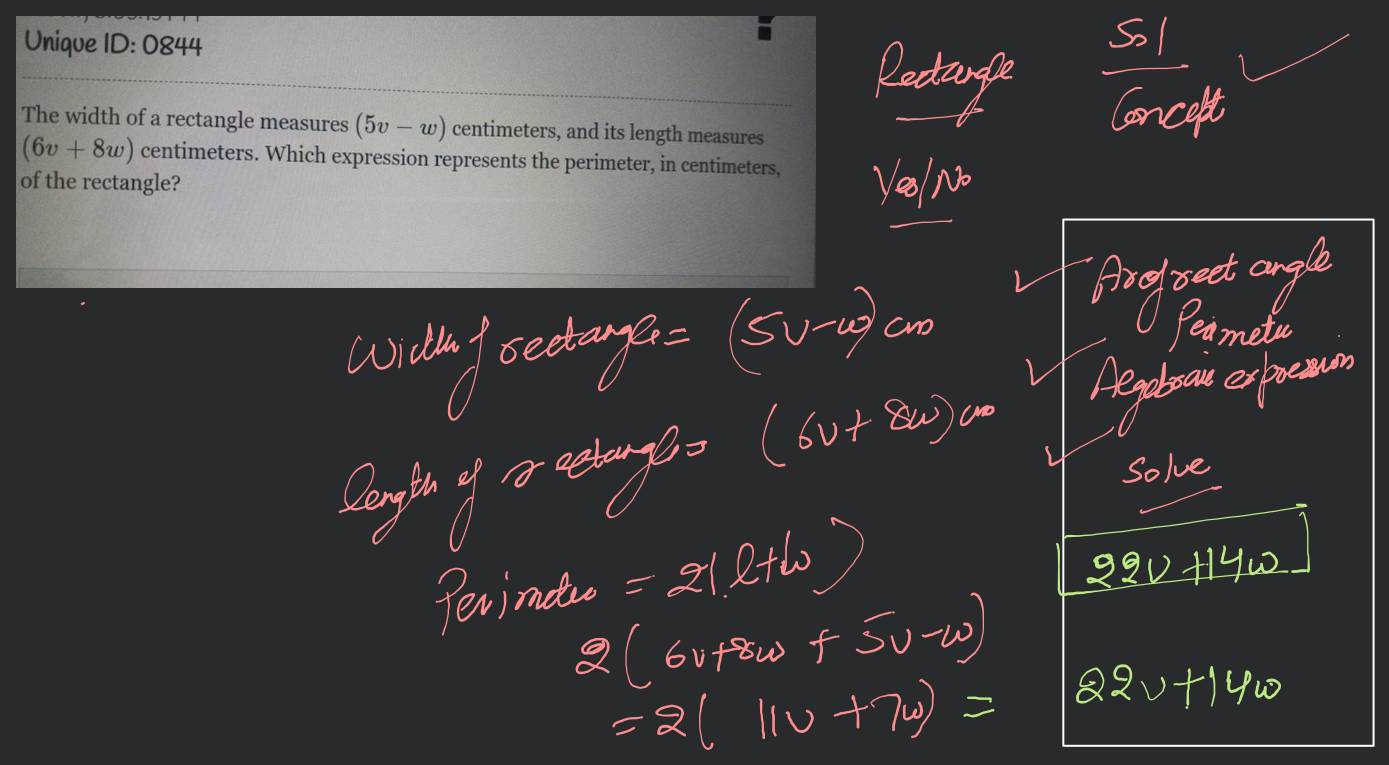 Unique ID: 0844
The width of a rectangle measures (5v − w) centimeters, and its length measures
(6v + 8w) centimeters. Which expression represents the perimeter, in centimeters,
of the rectangle?
Rectangle
Sol
Concept
Yes/No
Width of rectangle = (5v-w) cm
length of rectangle = (6v+ 8w) cm
Perimeter = 2(l+w)
2( 6v+8w + 5v-w)
=2( 11v +7w) =
rect angle
Perimeter
Algebraic expression
Solve
22v +14w
22v+14w